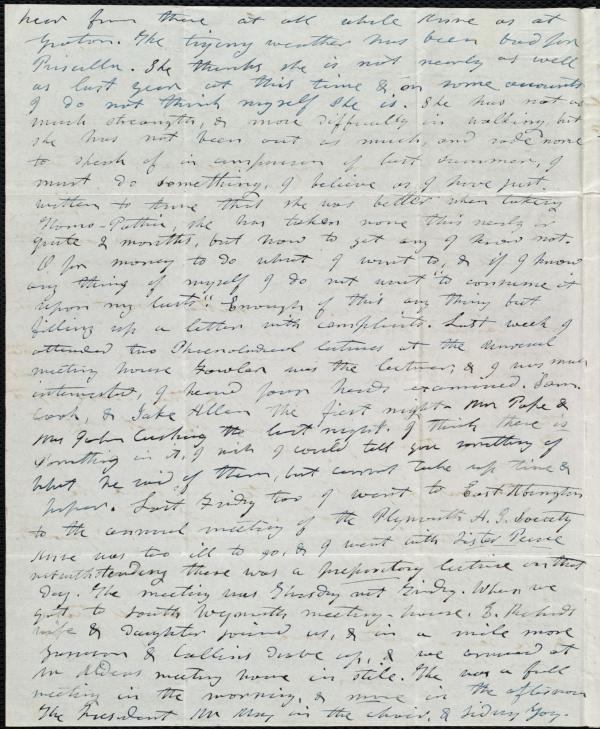 hear from there at all while Anne as at
Groton. The trying weather has been bad for
Priscilla. She thinks she is not nearly as well
as last year at this time & on some accounts
I do not think myself she is. She has not as
much strength, & more difficulty in walking, but
she has not been out as much, and rode none
to speak of in comparison of last summer, I
must do something, I believe as I have just
written to thine that she was better when taking
Homo-Pathia, she has taken none this nearly or
quite 2 months, but how to get any I know not.
O for money to do what I want to, & if I know
any thing of myself I do not want "to consume it
upon my lusts" Enough of this any thing but
filling up a letter with complaints. Last week I
attended two Phrenological lectures at the Universal
meeting house Fowler was the lecturer, & I was much
interested, I heard four heads examined. Sam
Cook, & Jake Allen the first night Mr Pope &
Mrs John Cushing the last night, I think there is
something in it, I wish I could tell you something of
what he said of them, but cannot take up time &
paper. Last Friday too I went to East Abington
to the annual meeting of the Plymouth A. S. Society
Anne was too ill to go, & I went with Sister Peirce
notwithstanding there was a prepository lecture on that
day. The meeting was Thursday not Friday. When we
got to South Weymouth meeting-house. E. Richards
wife & daughter joined us, & in a mile more
Garrison & Collins drove up, & we arrived at
Mr Aldens meeting house in stile. The was a full
meeting in the morning, & more in the afternoon
The President Mr May in the chair, &